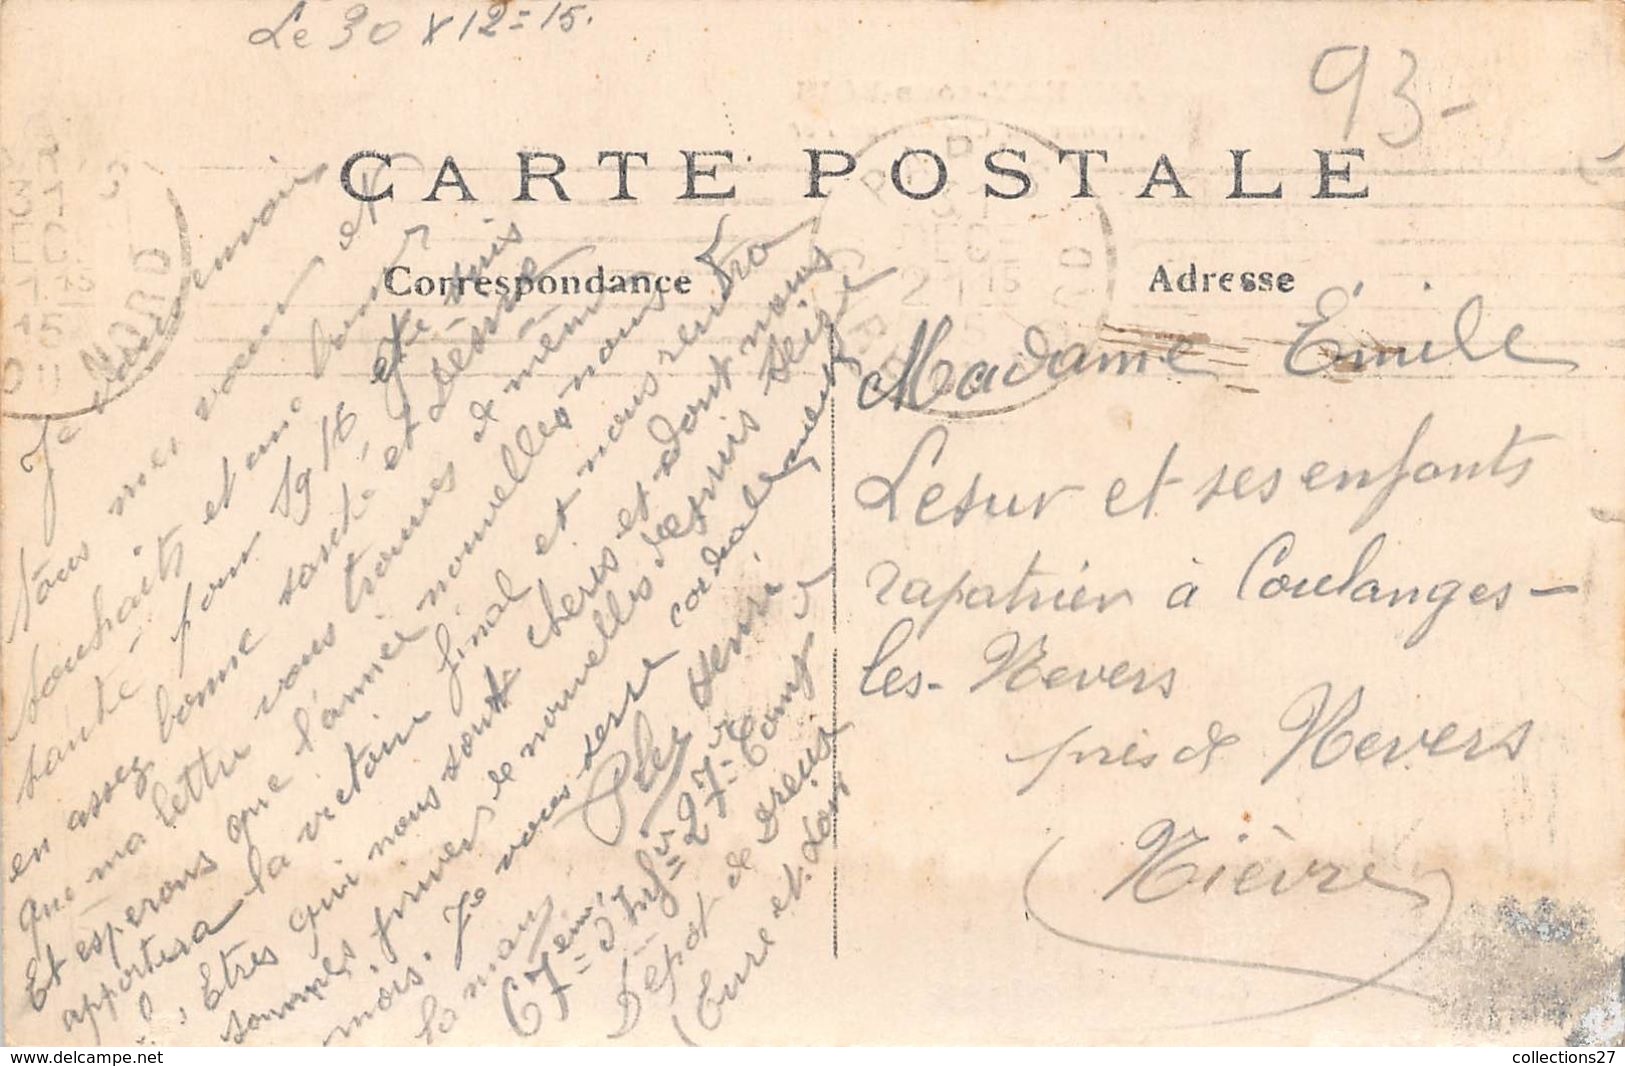 Le 30 × 12 = 15.
93-
CARTE POSTALE
Correspondance
Adresse
Je vous envoie
tous mes vœux et
souhaits et une bonne
santé pour 1916 Je suis
en assez bonne santé et désire
que ma lettre vous trouves de même
Et esperons que l'année nouvelle nous
apportera la victoire final et nous rendra
l Êtres qui nous sont chers et dont nous
sommes privés de nouvelles depuis seize
mois. Je vous serre cordialement
la main
Henri
67ème d'Infie 27e Compie
Dépot de Dreux
(Eure et Loir
Madame Emile
Lesur et ses enfants
rapatrier à Coulanges-
les-Nevers
près de Nevers
Nièvre
NORD
PARIS
GARE DU NORD
collections27